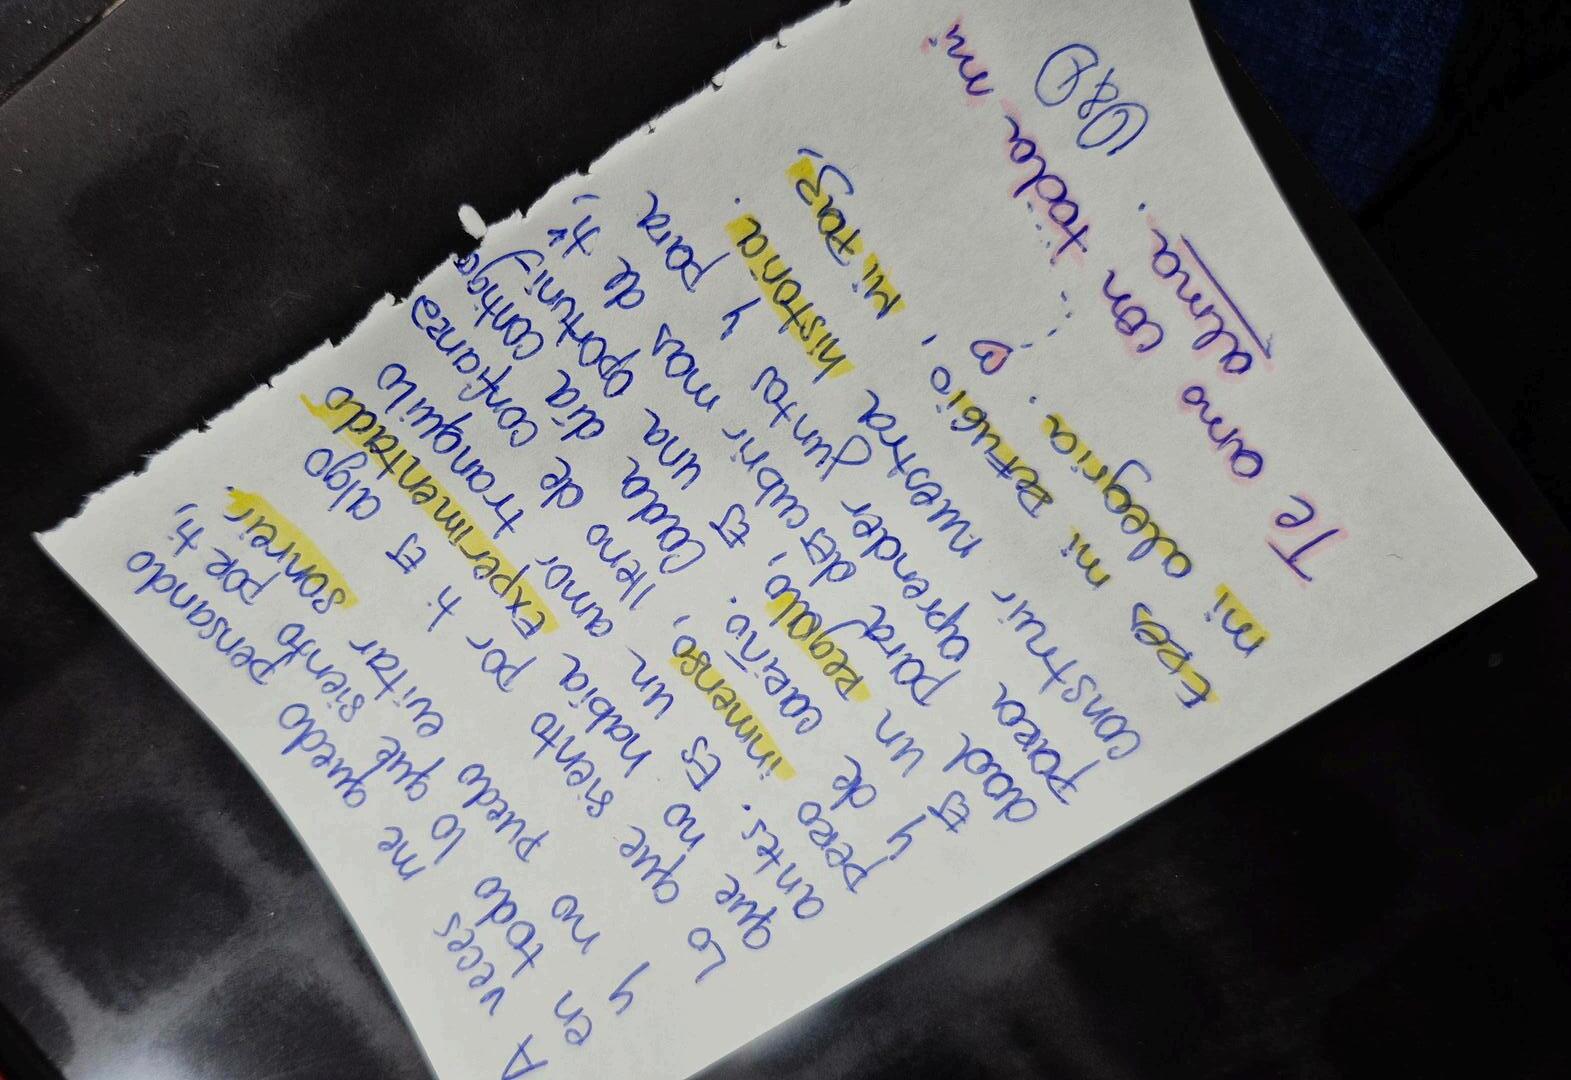 A veces me quedo pensando
en todo lo que siento por ti,
y no puedo evitar sonreir.
Lo que siento por ti es algo
que no había experimentado
antes. Es un amor tranquilo
pero inmenso, lleno de confianza
y de cariño. Cada día contigo
es un regalo, es una oportuni-
dad para descubrir mas de ti,
para aprender juntos y para
construir nuestra historia.
Eres mi refugio, mi paz,
mi alegria. ♡
Te amo con toda mi
alma.